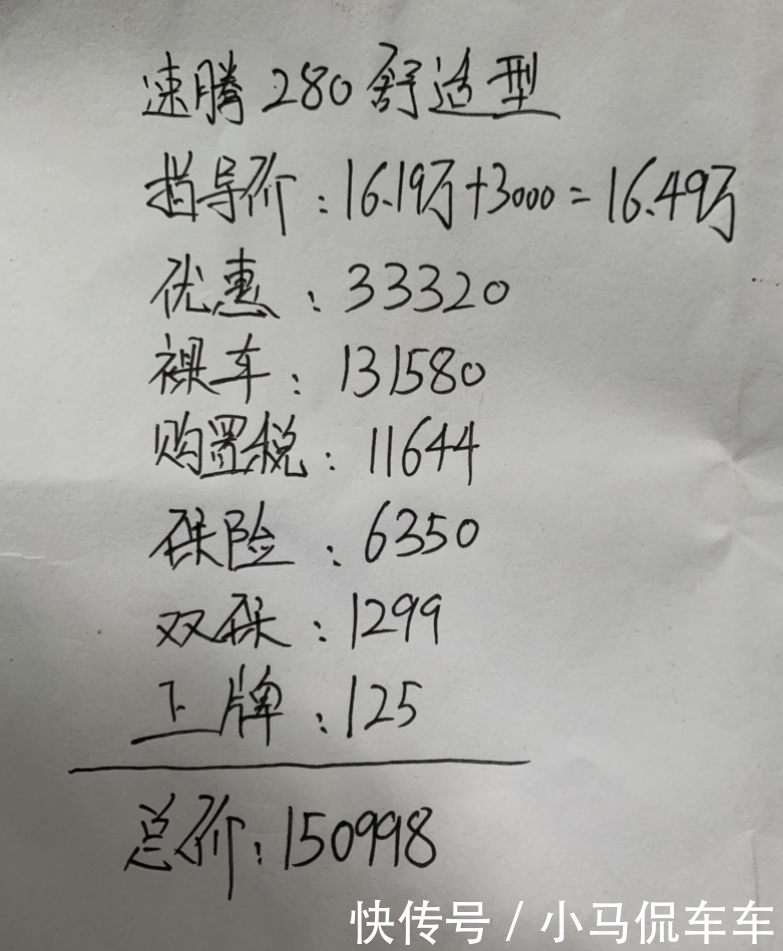 速腾 280 舒适型
指导价：16.19万+3000=16.49万
优惠：33320
裸车：131580
购置税：11644
保险：6350
双保：1299
上牌：125
总价：150998
快传号 / 小马侃车车